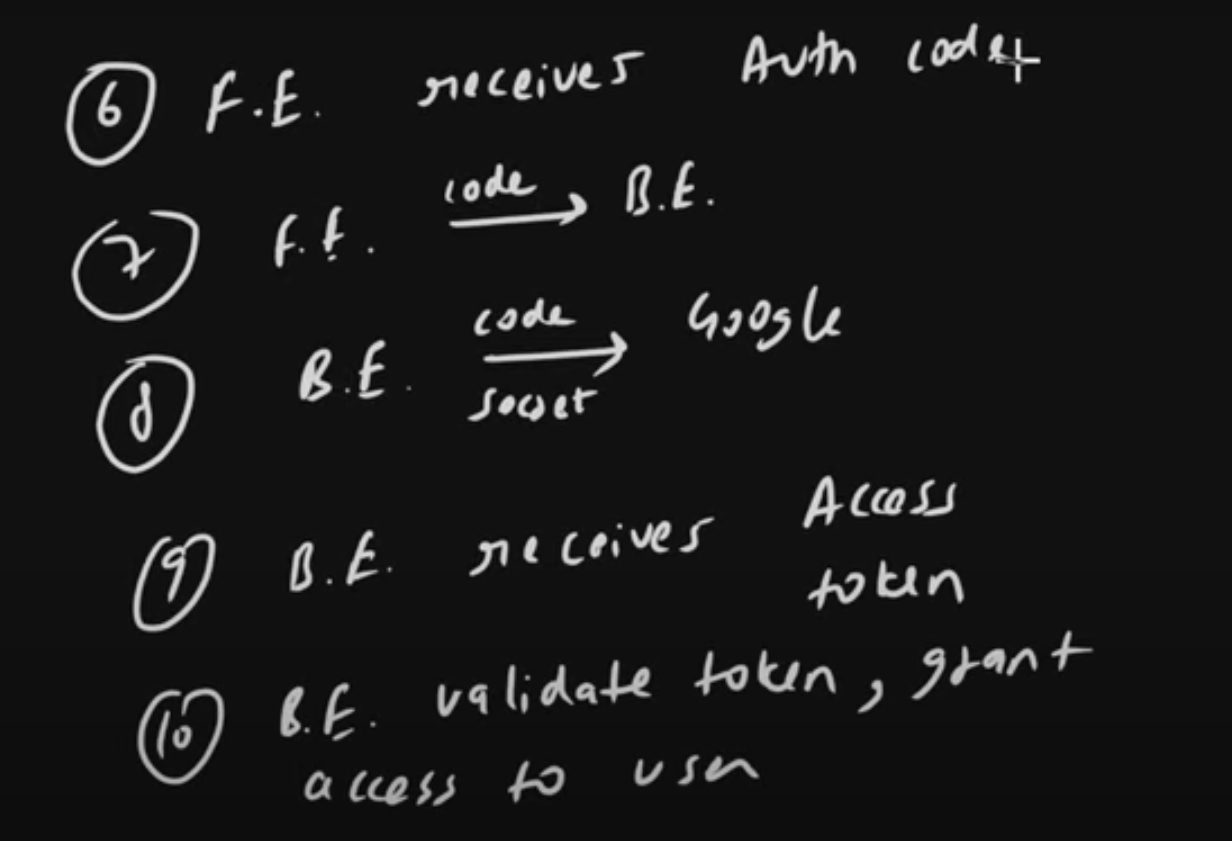 6 F.E. receives Auth code
7 F.E. code → B.E.
8 B.E. code → Google
secret
9 B.E. receives Access
token
10 B.E. validate token, grant
access to user